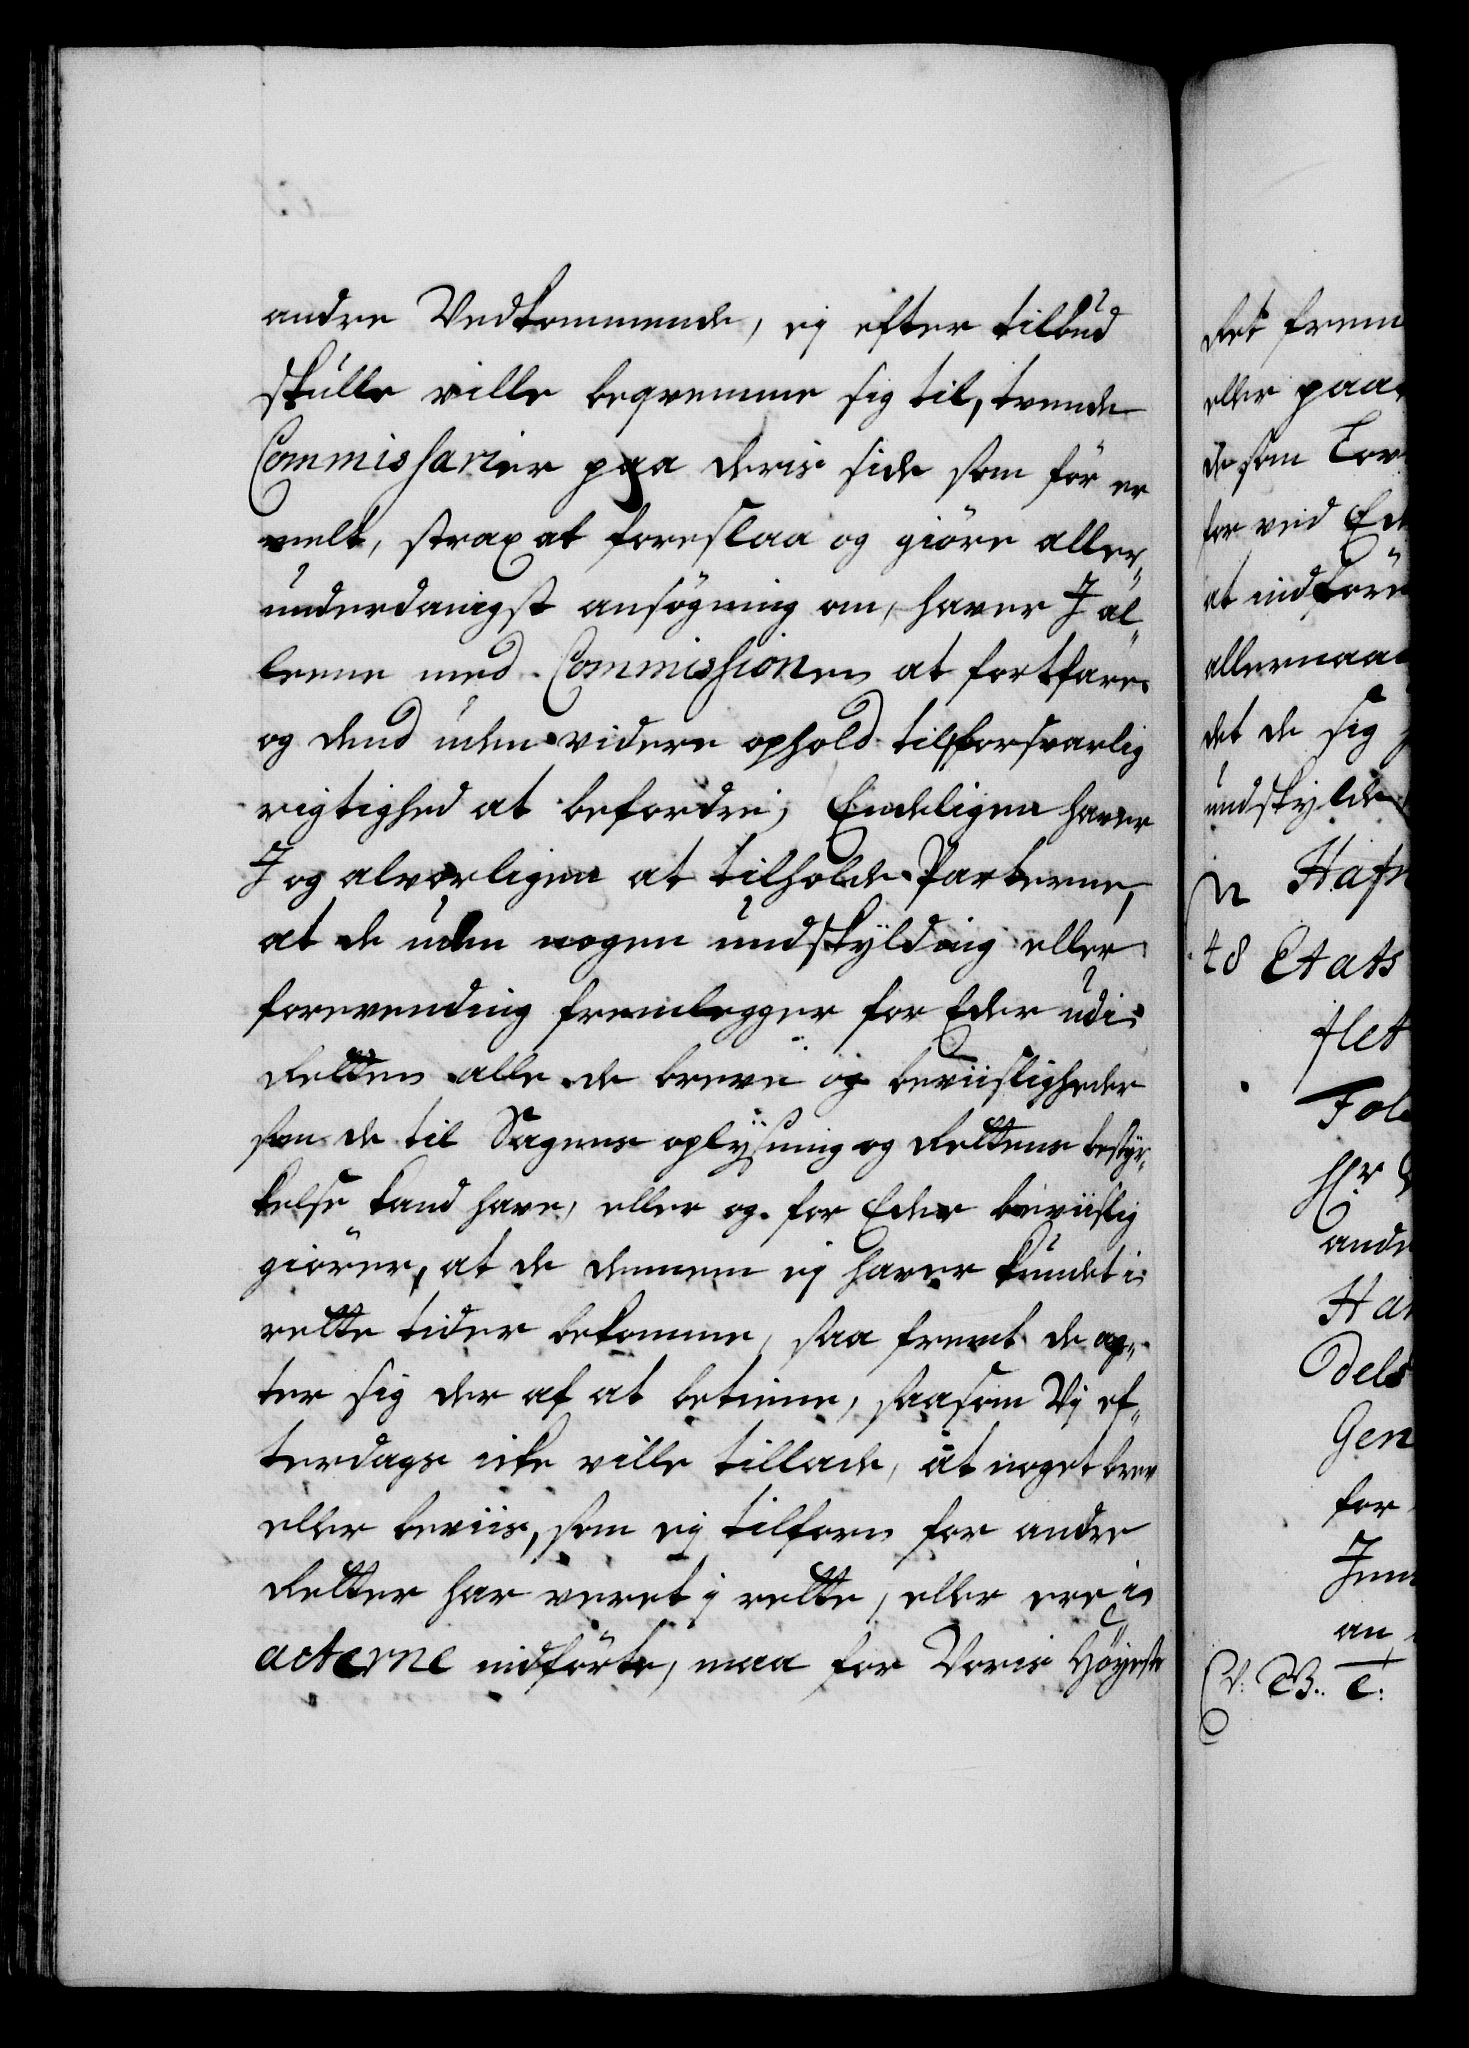 andre Vedkommende, ej efter tilbud
skulle ville beqvemme sig til, tvende
Commissarier paa deris side som för er
melt, strax at foreslaa og giöre aller-
underdanigst ansögning om, haver I al-
leene med Commissionen at fortfare
og dend uden videre ophold til forsvarlig
rigtighed at befordre; Endeligen haver
I og alvorligen at tilholde Parterne,
at de uden nogen undskÿlding eller
forevending fremlegger for Eder udi
Retten alle de breve og beviisligheder
som de til Sagens oplÿsning og Rettens bestyr-
kelse kand have, eller og for Eder beviislig
giörer, at de dennem ej haver kundet i
rette tider bekomme, saa fremt de ag-
ter sig der af at betiene, saasom Vj ef-
terdags icke ville tillade, at noget brev
eller beviis, som ej tilforn for andre
Retter har veret j rette, eller ere i
acterne indförte, maa for Voris Höyeste
det frem
eller paa
de som
for ved
at indföre
allernaa
det de sig
undskylde
Hafn
48 Etats
flet
Hr
andr
Gen
for
an